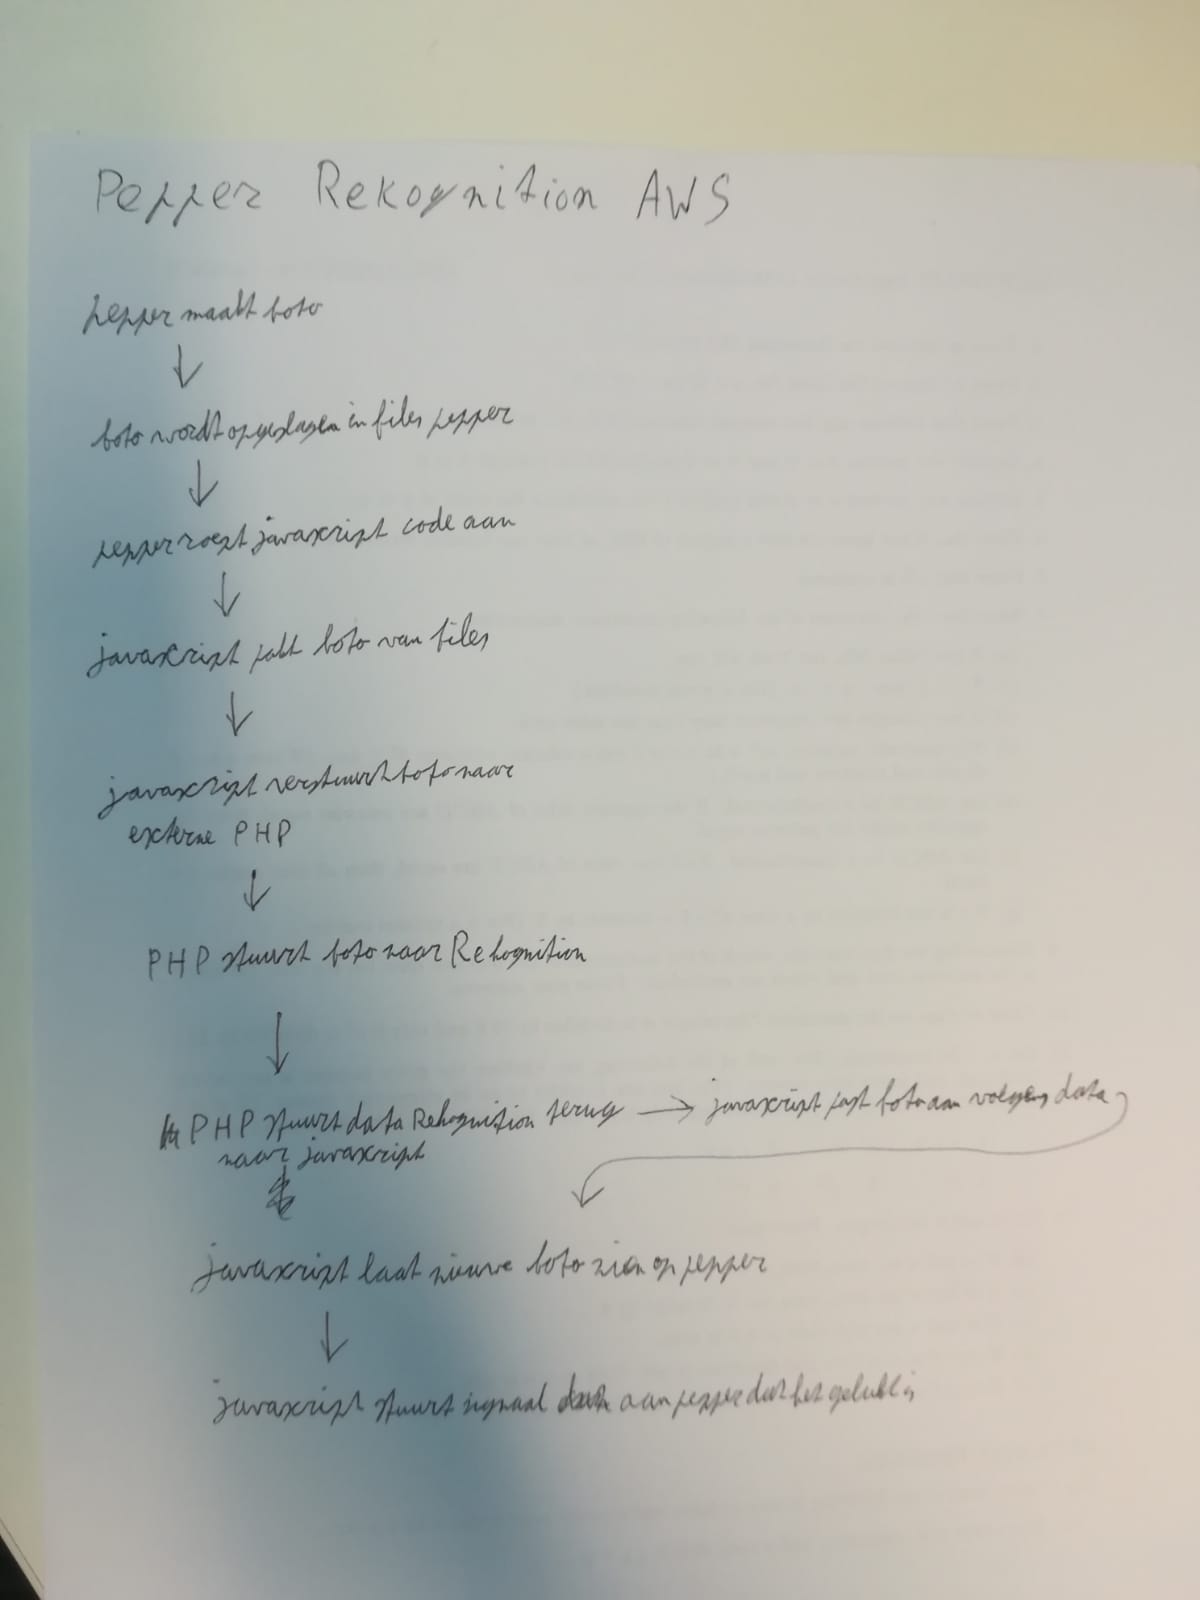 Pepper Rekognition AWS
pepper maakt foto
foto wordt opgeslagen in files pepper
pepper roept javascript code aan
javascript pakt foto van files
javascript verstuurt foto naar
externe PHP
PHP stuurt foto naar Rekognition
PHP stuurt data Rekognition terug
naar javascript
javascript past foto aan volgens data
javascript laat nieuwe foto zien op pepper
javascript stuurt signaal aan pepper dat het gelukt is